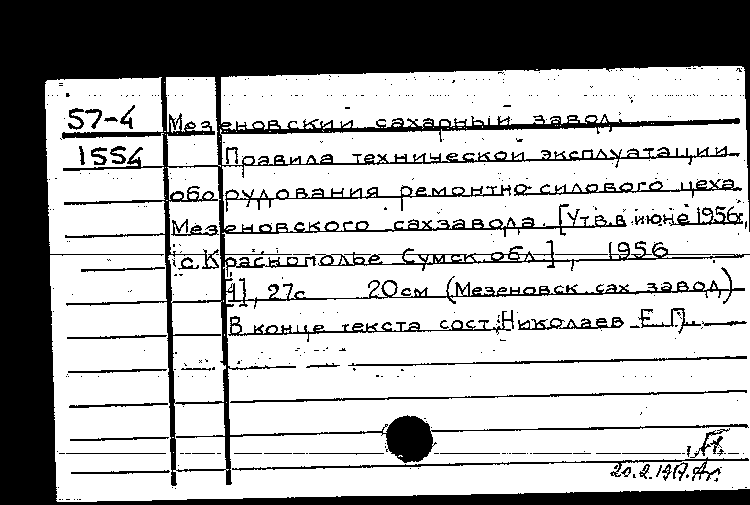 57-4 Мезеновский сахарный завод.
1554 Правила технической эксплуатации
оборудования ремонтно-силового цеха
Мезеновского сахзавода. [Утв. в июне 1956г.,
с. Краснополье Сумск. обл.], 1956
[1], 27с 20 см (Мезеновск. сах. завод)
В конце текста сост.: Николаев Е. П.